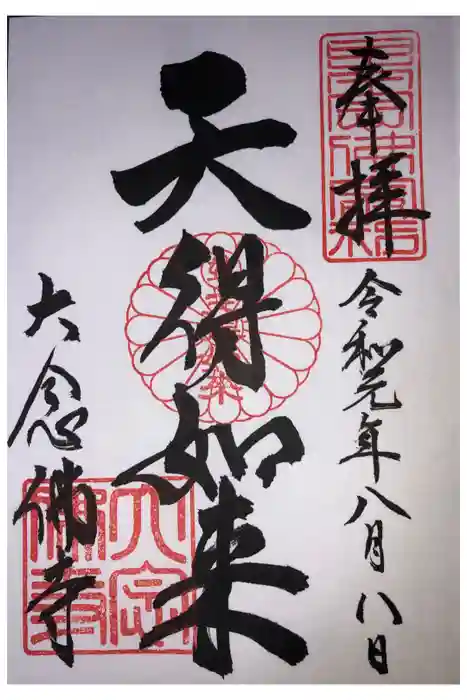 奉拝
令和元年八月八日
天得如来
大念佛寺
大念佛寺